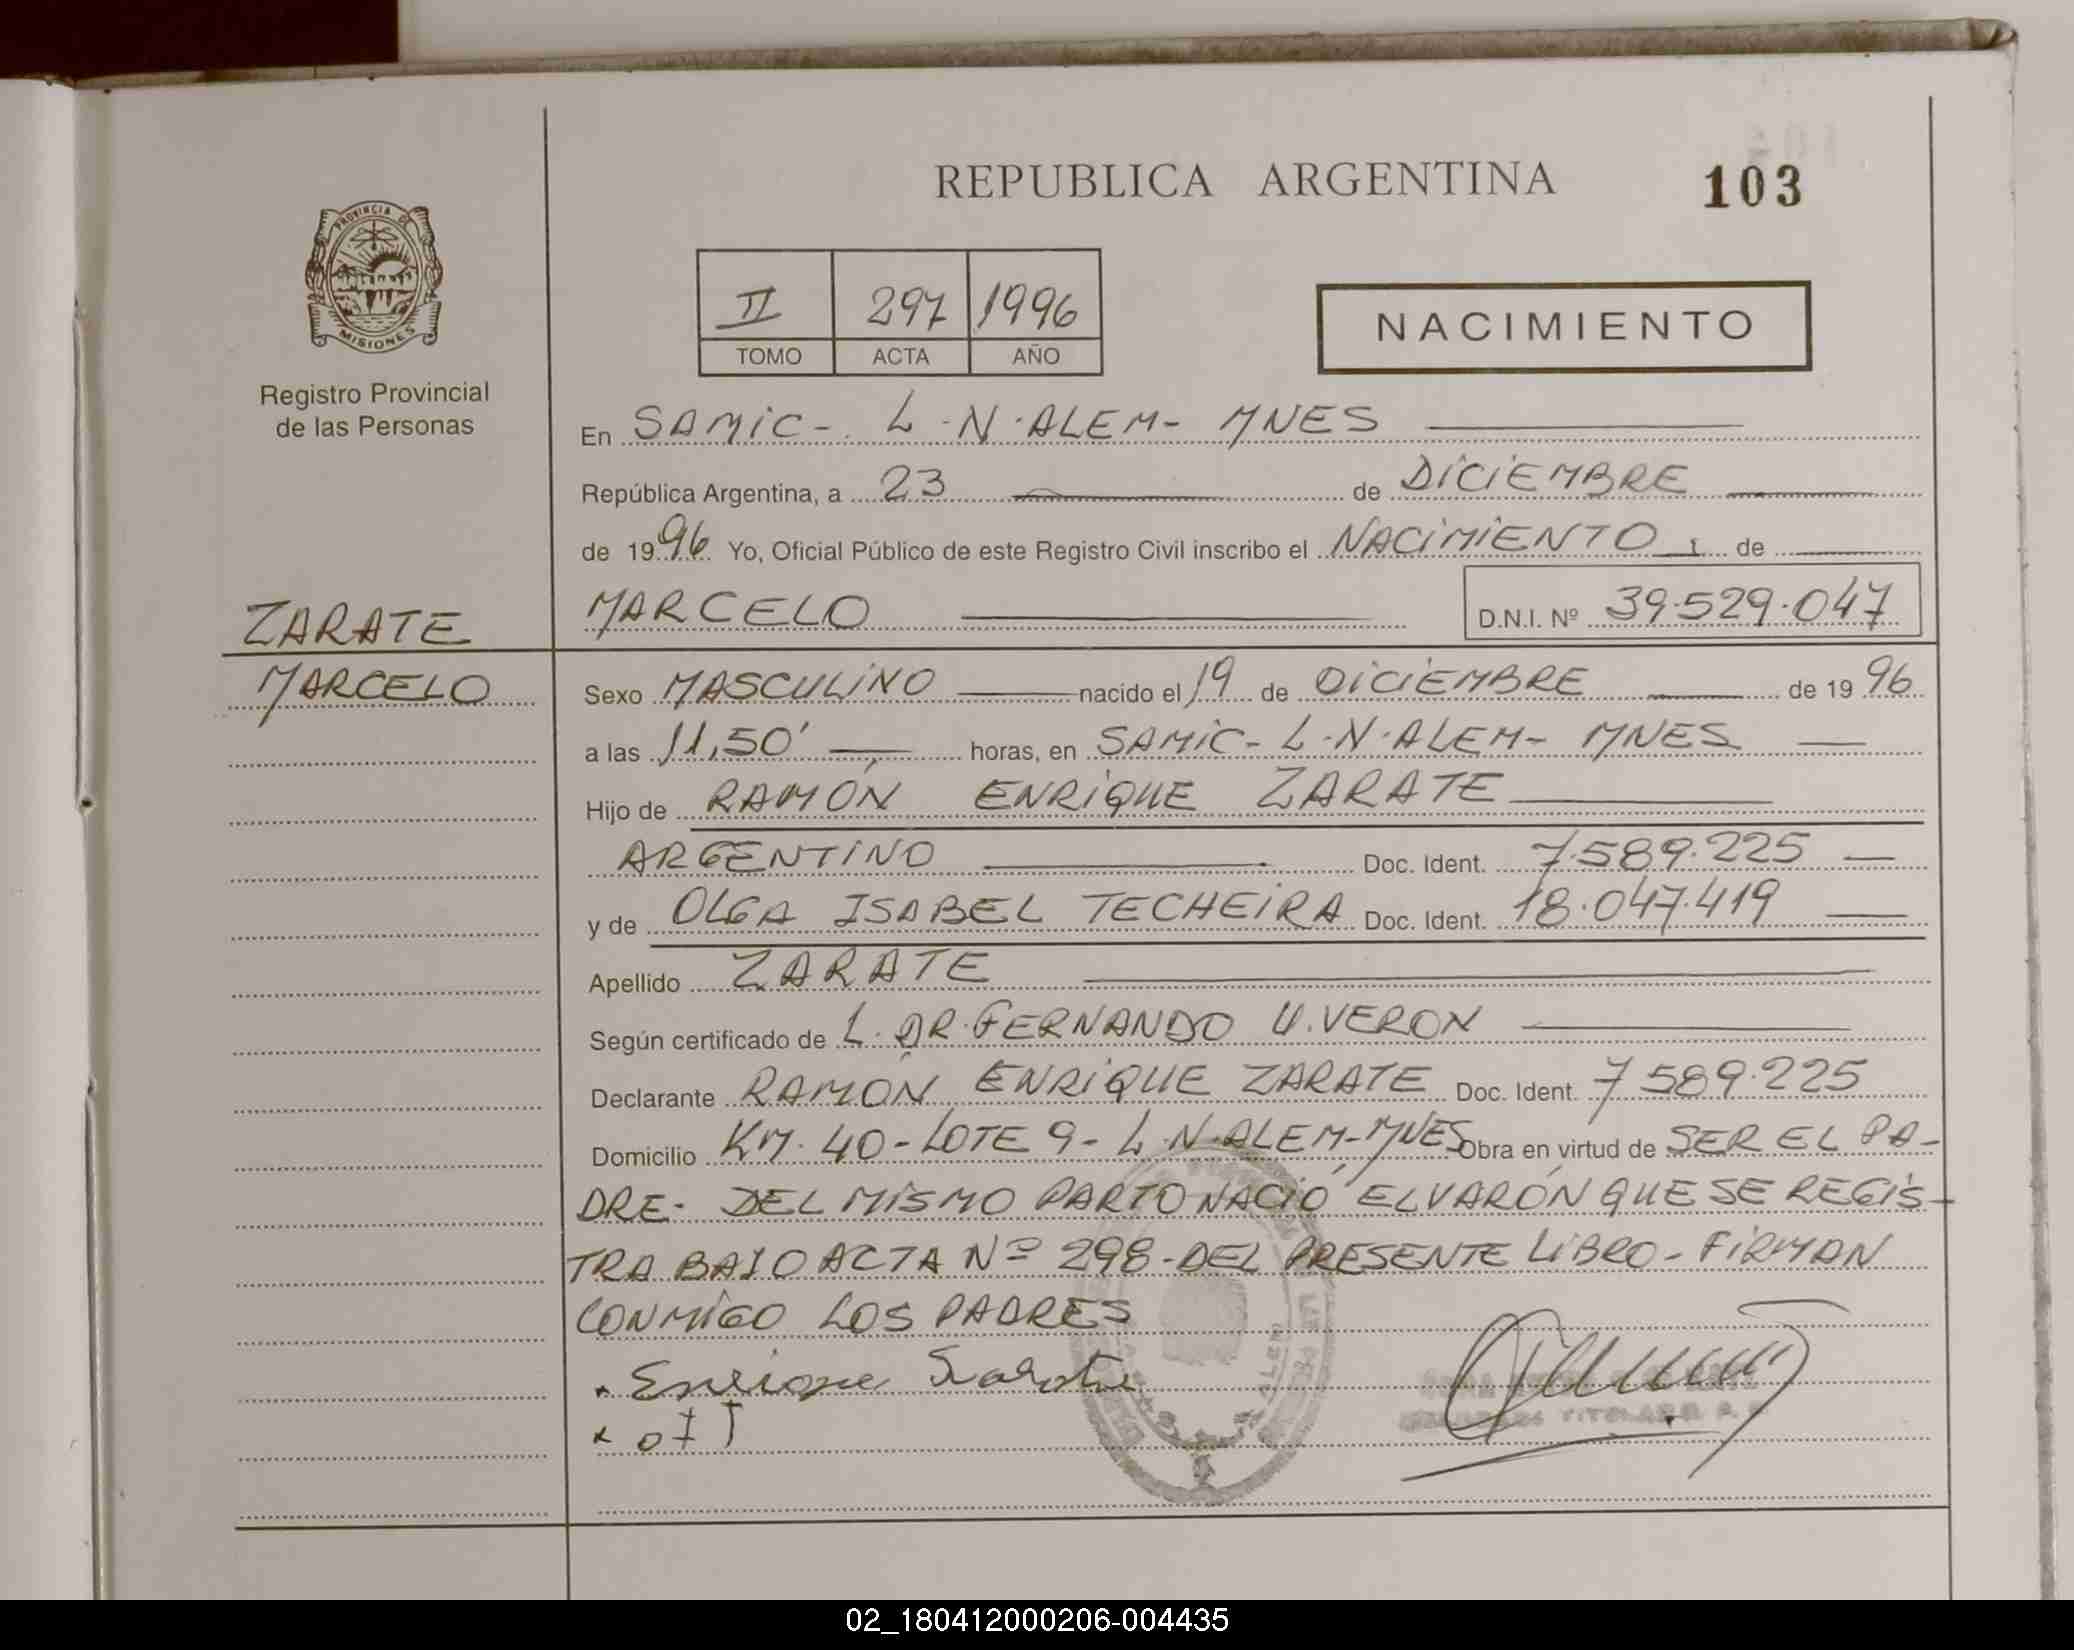 REPUBLICA ARGENTINA
103
PROVINCIA DE
MISIONES
Registro Provincial
de las Personas
II 297 1996
TOMO ACTA AÑO
NACIMIENTO
En SAMIC- L.N.ALEM- MNES
República Argentina, a 23 de DICIEMBRE
de 1996 Yo, Oficial Público de este Registro Civil inscribo el NACIMIENTO de
MARCELO D.N.I. Nº 39.529.047
ZARATE
MARCELO
Sexo MASCULINO nacido el 19 de DICIEMBRE de 1996
a las 11,50' horas, en SAMIC- L.N.ALEM- MNES
Hijo de RAMÓN ENRIQUE ZARATE
ARGENTINO Doc. Ident. 7.589.225
y de OLGA ISABEL TECHEIRA Doc. Ident. 18.047.419
Apellido ZARATE
Según certificado de L. DR. FERNANDO U. VERON
Declarante RAMÓN ENRIQUE ZARATE Doc. Ident. 7589.225
Domicilio KM. 40-LOTE 9- L.N.ALEM-MNES Obra en virtud de SER EL PA-
DRE- DEL MISMO PARTO NACIÓ EL VARÓN QUE SE REGIS-
TRA BAJO ACTA Nº 298-DEL PRESENTE LIBRO- FIRMAN
CONMIGO LOS PADRES
Enrique Sarate
TITULAR
02_180412000206-004435